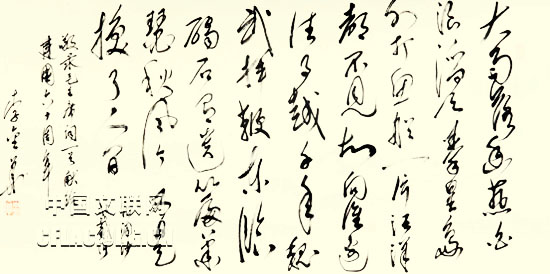 大雨落幽燕白
浪滔天秦皇岛
外打鱼船一片汪洋
都不见知向谁边
往事越千年魏
武挥鞭东临
碣石有遗篇萧
瑟秋风今又是
换了人间
敬录毛主席词一首献给
建国六十周年
中国文联网